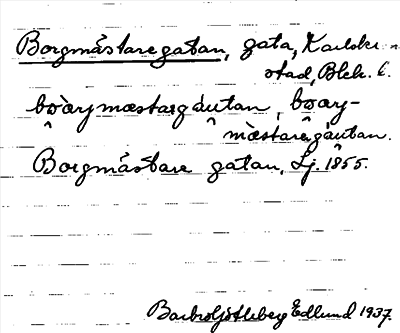 Borgmästaregatan, gata, Karlskrona
stad, Blek. l.
bòarymæstargáutan, bòary-
mæstaregáutan.
Borgmästare gatan, Lj. 1855.
Edlund 1937.